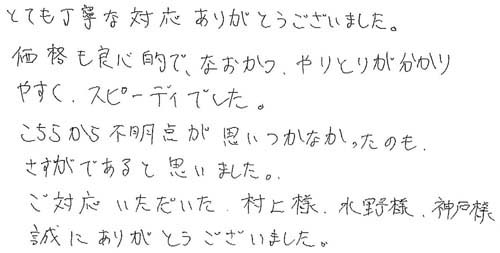 とても丁寧な対応ありがとうございました。
価格も良心的で、なおかつ、やりとりが分かり
やすく、スピーディでした。
こちらから不明点が思いつかなかったのも、
さすがであると思いました。
ご対応いただいた、村上様、水野様、神戸様
誠にありがとうございました。